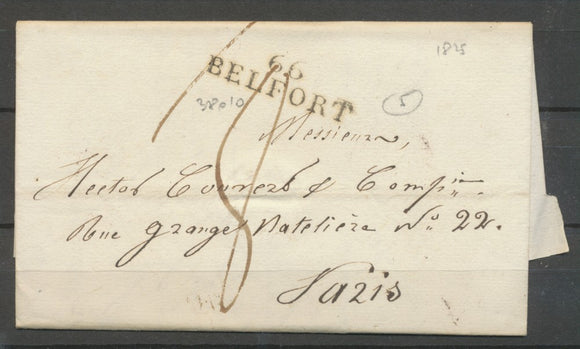 1825
66
BELFORT
38010
5
Messieurs,
Hector Couvers & Comp.ie
Rue grange Batelière No. 22.
8
Paris